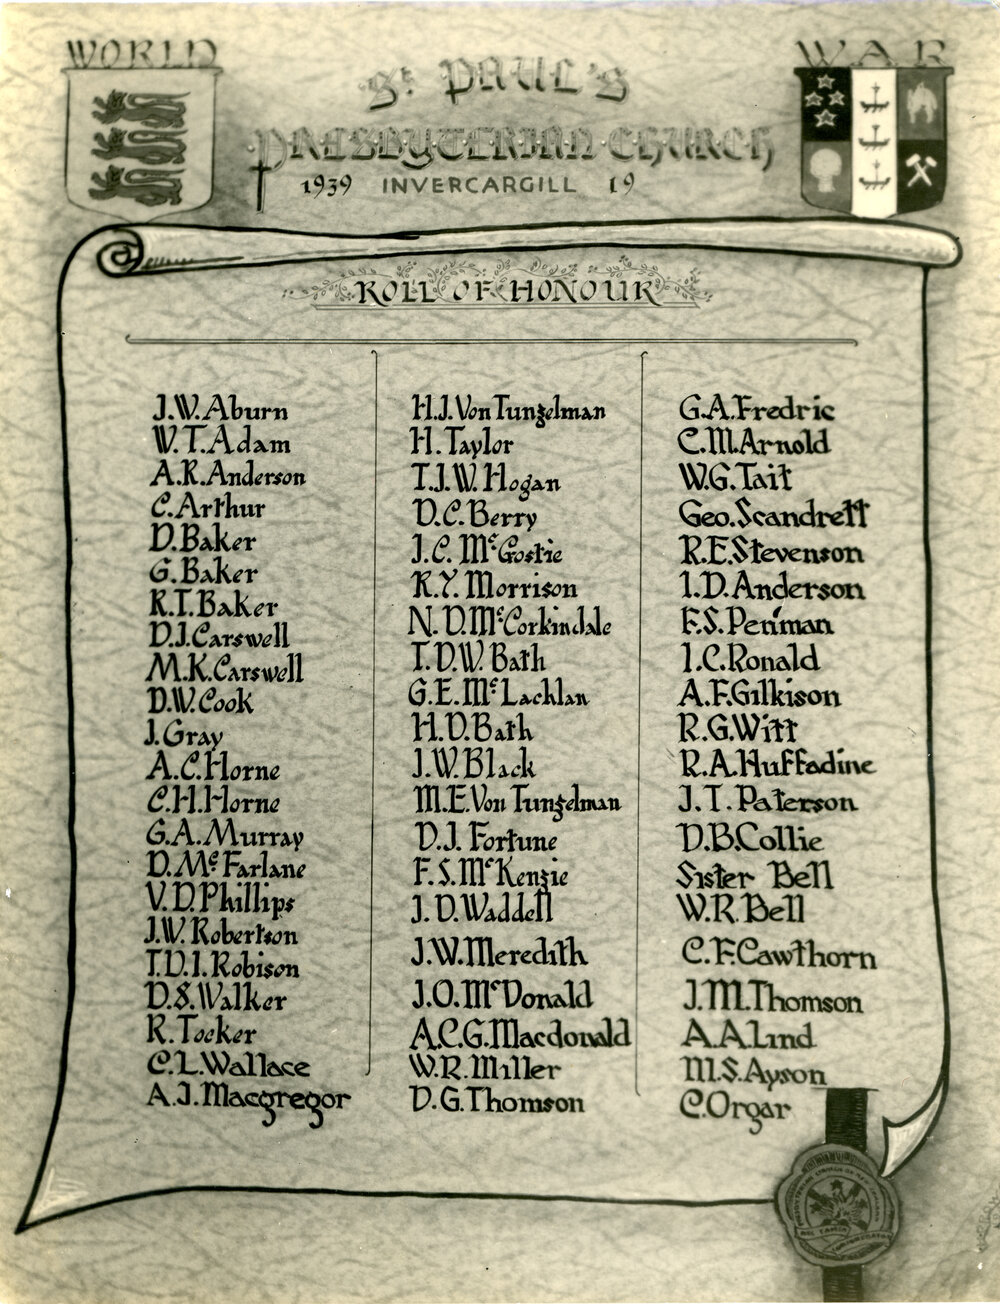 WORLD WAR
St. PAUL'S
PRESBYTERIAN CHURCH
1939 INVERCARGILL 19
ROLL OF HONOUR
J.W.Aburn
W.T.Adam
A.R.Anderson
C.Arthur
D.Baker
G.Baker
R.T.Baker
D.J.Carswell
M.K.Carswell
D.W.Cook
J.Gray
A.C.Horne
C.H.Horne
G.A.Murray
D.McFarlane
V.D.Phillips
J.W.Robertson
T.D.I.Robison
D.S.Walker
R.Tocker
C.L.Wallace
A.J.Macgregor
H.J.Von Tunzelman
H.Taylor
T.J.W.Hogan
D.C.Berry
J.C. McGostie
R.Y.Morrison
N.D.McCorkindale
T.D.W.Bath
G.E.McLachlan
H.D.Bath
J.W.Black
M.E.Von Tunzelman
D.J. Fortune
F.S.McKenzie
J.D.Waddell
J.W.Meredith
J.O.McDonald
A.C.G.Macdonald
W.R.Miller
D.G.Thomson
G.A.Fredric
C.M.Arnold
W.G.Tait
Geo.Scandrett
R.E.Stevenson
I.D.Anderson
F.S.Penman
I.C.Ronald
A.F.Gilkison
R.G.Witt
R.A.Huffadine
J.T.Paterson
D.B.Collie
Sister Bell
W.R.Bell
C.F.Cawthorn
J.M.Thomson
A.A.Lind
M.S.Ayson
C.Orgar